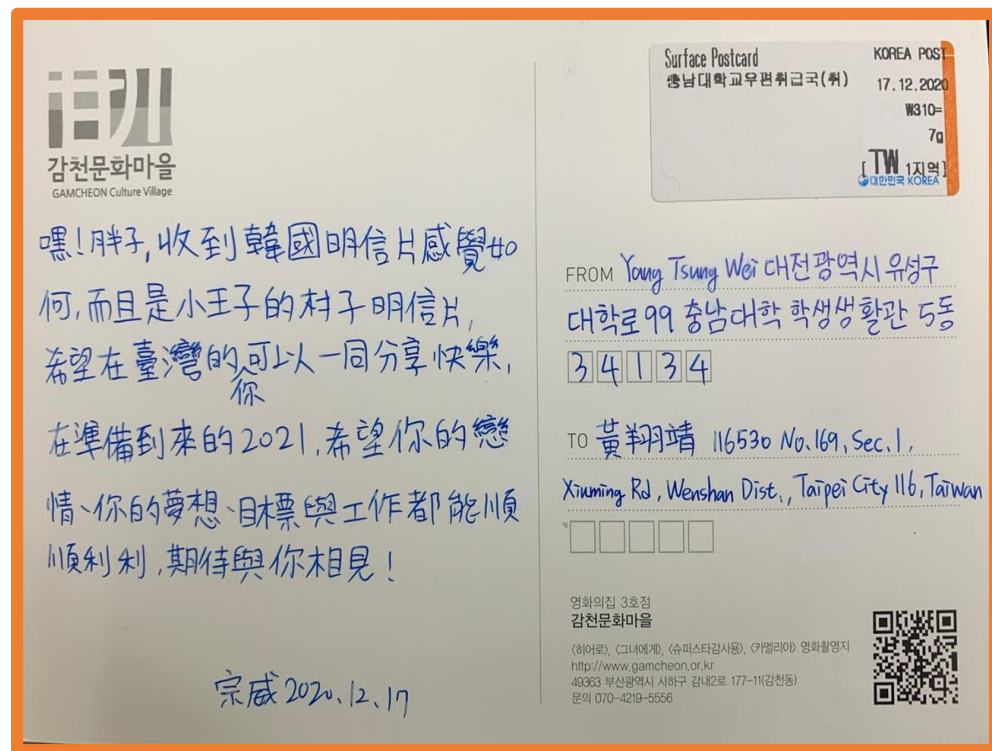 감천문화마을
GAMCHEON Culture Village
嘿!胖子,收到韓國明信片感覺如
何,而且是小王子的村子明信片,
希望在臺灣的你可以一同分享快樂,
在準備到來的2021,希望你的戀
情、你的夢想、目標與工作都能順
順利利,期待與你相見!
宗威 2020.12.17
Surface Postcard
KOREA POST
충남대학교우편취급국(취)
17.12.2020
₩310=
7g
[TW 1지역]
대한민국 KOREA
FROM Yang Tsung Wei 대전광역시 유성구
대학로99 충남대학 학생생활관 5동
34134
TO 黃翔靖 116530 No.169, Sec.1,
Xiuming Rd, Wenshan Dist., Taipei City 116, Taiwan
영화의집 3호점
감천문화마을
〈히어로〉, 〈그녀에게〉, 〈슈퍼스타감사용〉, 〈카멜리아〉 영화촬영지
http://www.gamcheon.or.kr
49363 부산광역시 사하구 감내2로 177-11(감천동)
문의 070-4219-5556